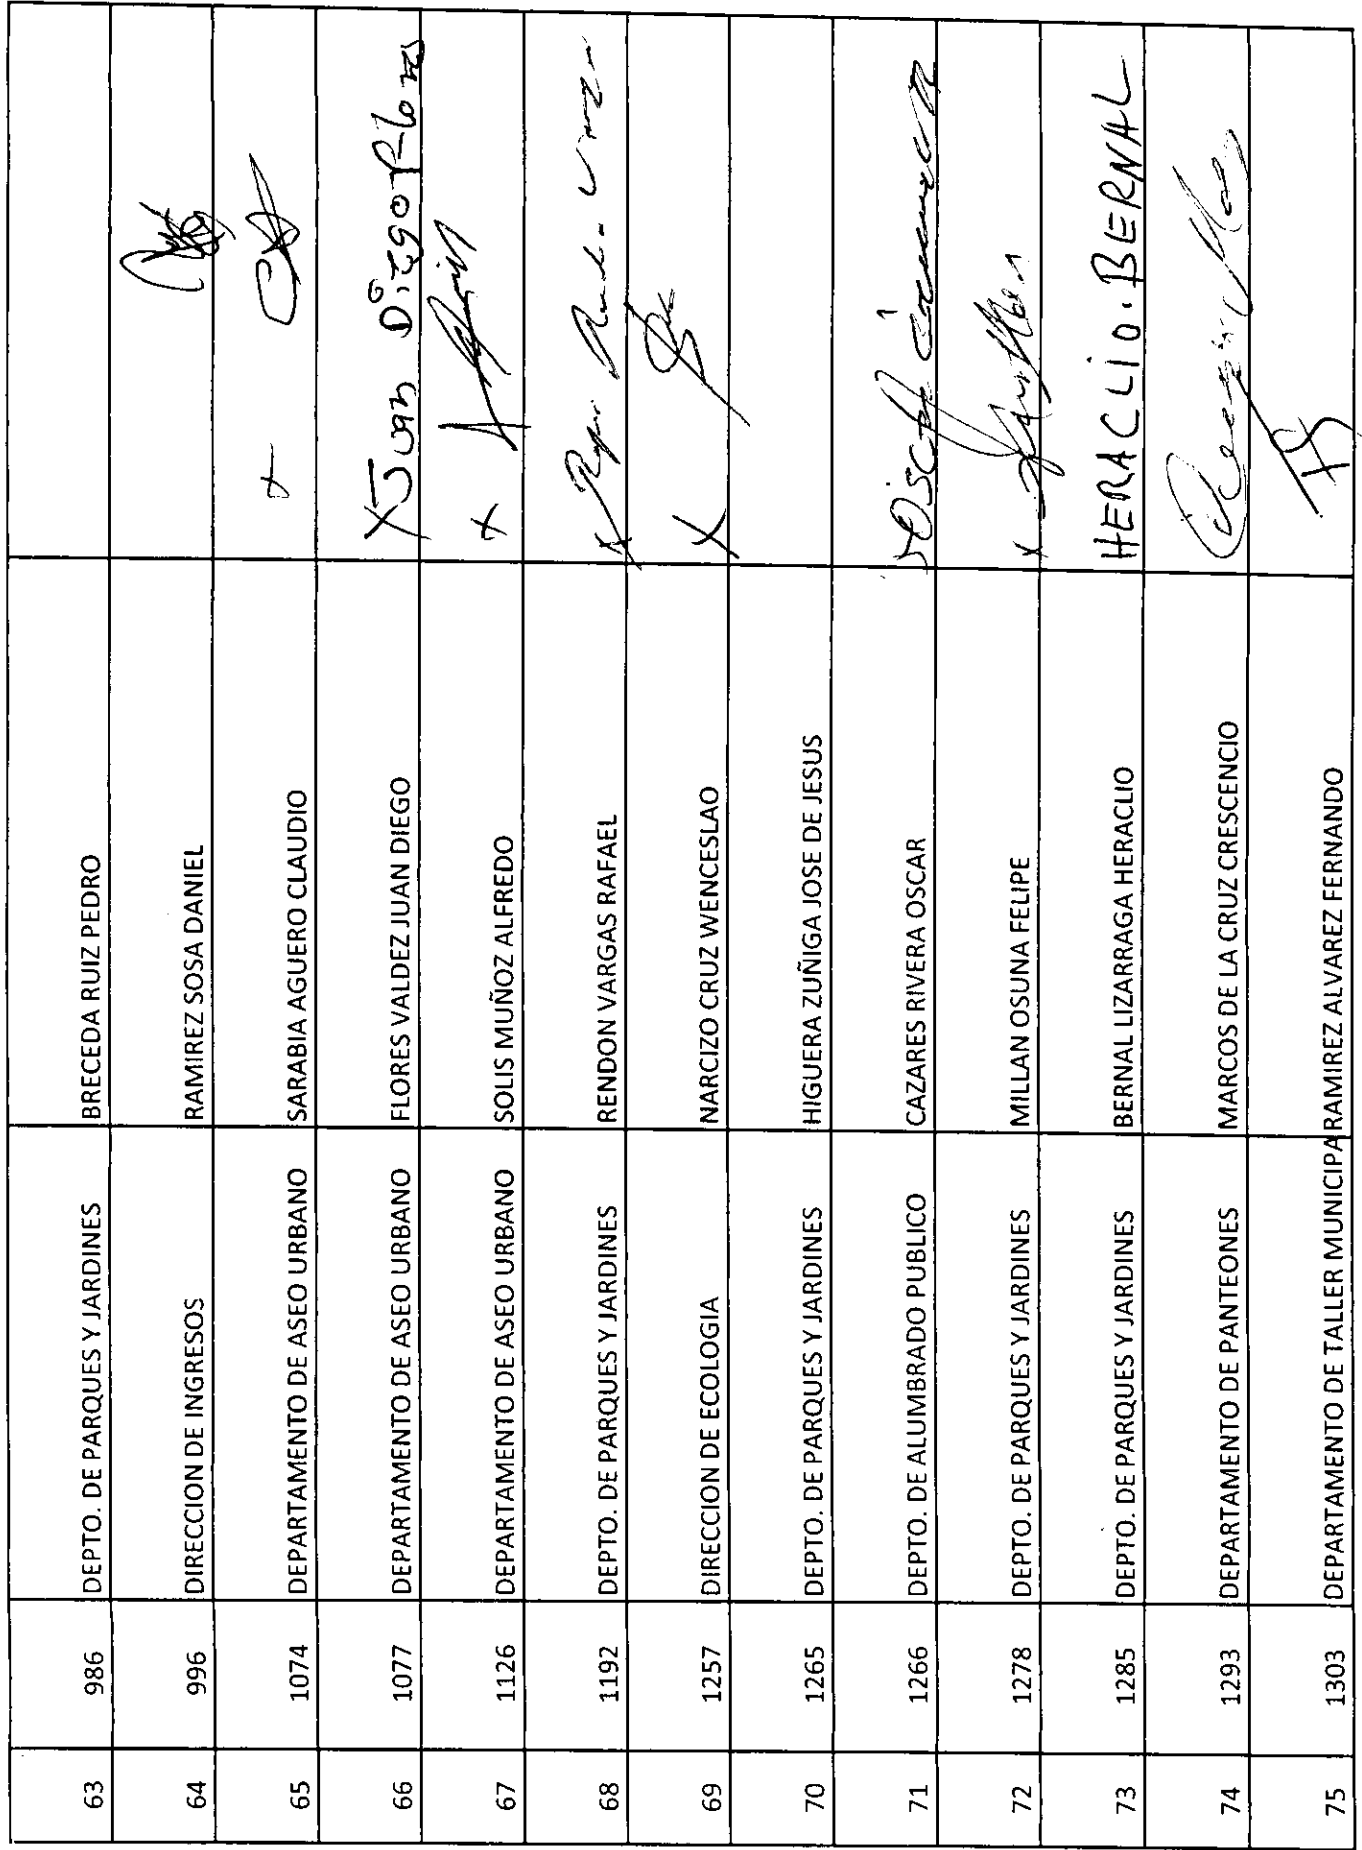 63 986 DEPTO. DE PARQUES Y JARDINES BRECEDA RUIZ PEDRO
64 996 DIRECCION DE INGRESOS RAMIREZ SOSA DANIEL
65 1074 DEPARTAMENTO DE ASEO URBANO SARABIA AGUERO CLAUDIO
66 1077 DEPARTAMENTO DE ASEO URBANO FLORES VALDEZ JUAN DIEGO X Juan Diego Flores
67 1126 DEPARTAMENTO DE ASEO URBANO SOLIS MUÑOZ ALFREDO X
68 1192 DEPTO. DE PARQUES Y JARDINES RENDON VARGAS RAFAEL X
69 1257 DIRECCION DE ECOLOGIA NARCIZO CRUZ WENCESLAO X
70 1265 DEPTO. DE PARQUES Y JARDINES HIGUERA ZUÑIGA JOSE DE JESUS
71 1266 DEPTO. DE ALUMBRADO PUBLICO CAZARES RIVERA OSCAR
72 1278 DEPTO. DE PARQUES Y JARDINES MILLAN OSUNA FELIPE X
73 1285 DEPTO. DE PARQUES Y JARDINES BERNAL LIZARRAGA HERACLIO HERACLIO. BERNAL
74 1293 DEPARTAMENTO DE PANTEONES MARCOS DE LA CRUZ CRESCENCIO
75 1303 DEPARTAMENTO DE TALLER MUNICIPA RAMIREZ ALVAREZ FERNANDO